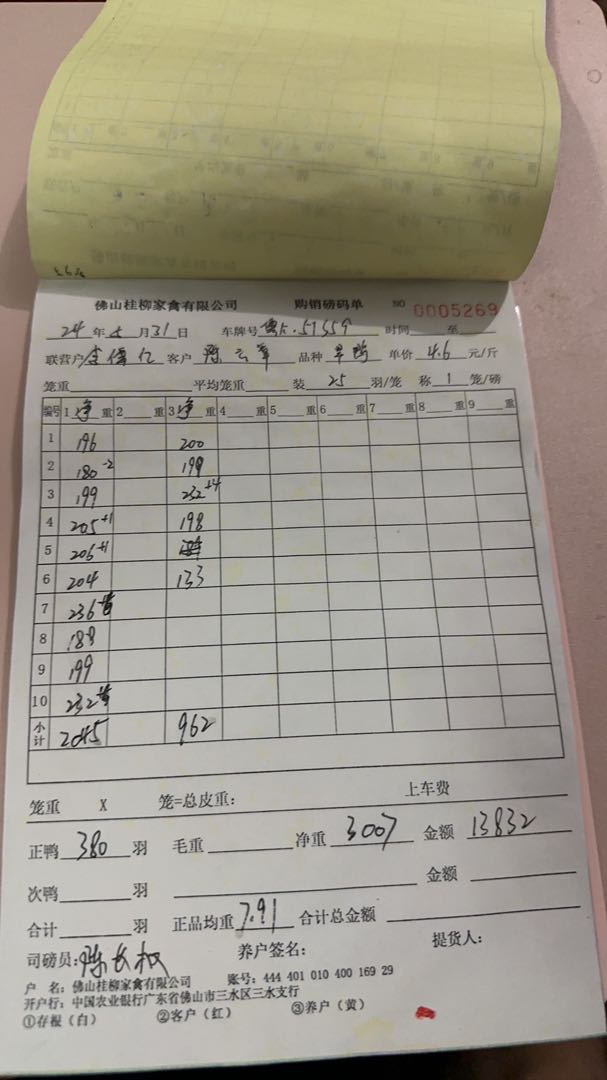 佛山桂柳家禽有限公司 购销磅码单 NO 0005269
24 年 5 月 31 日 车牌号 时间 至
联营户 客户 品种 单价 4.6 元/斤
笼重 平均笼重 装 25 羽/笼 称 1 笼/磅
编号 1 净 重 2 重 3 净 重 4 重 5 重 6 重 7 重 8 重 9 重
1 196 200
2 180 -2 199
3 199 232 +4
4 205 +1 198
5 206 +1
6 204 133
7 236
8 188
9 199
10 232
小计 2045 962
笼重 X 笼=总皮重： 上车费
正鸭 380 羽 毛重 净重 3007 金额 13832
次鸭 羽 金额
合计 羽 正品均重 7.91 合计总金额
司磅员： 养户签名： 提货人：
户 名：佛山桂柳家禽有限公司 账号：444 401 010 400 169 29
开户行：中国农业银行广东省佛山市三水区三水支行
①存根（白） ②客户（红） ③养户（黄）